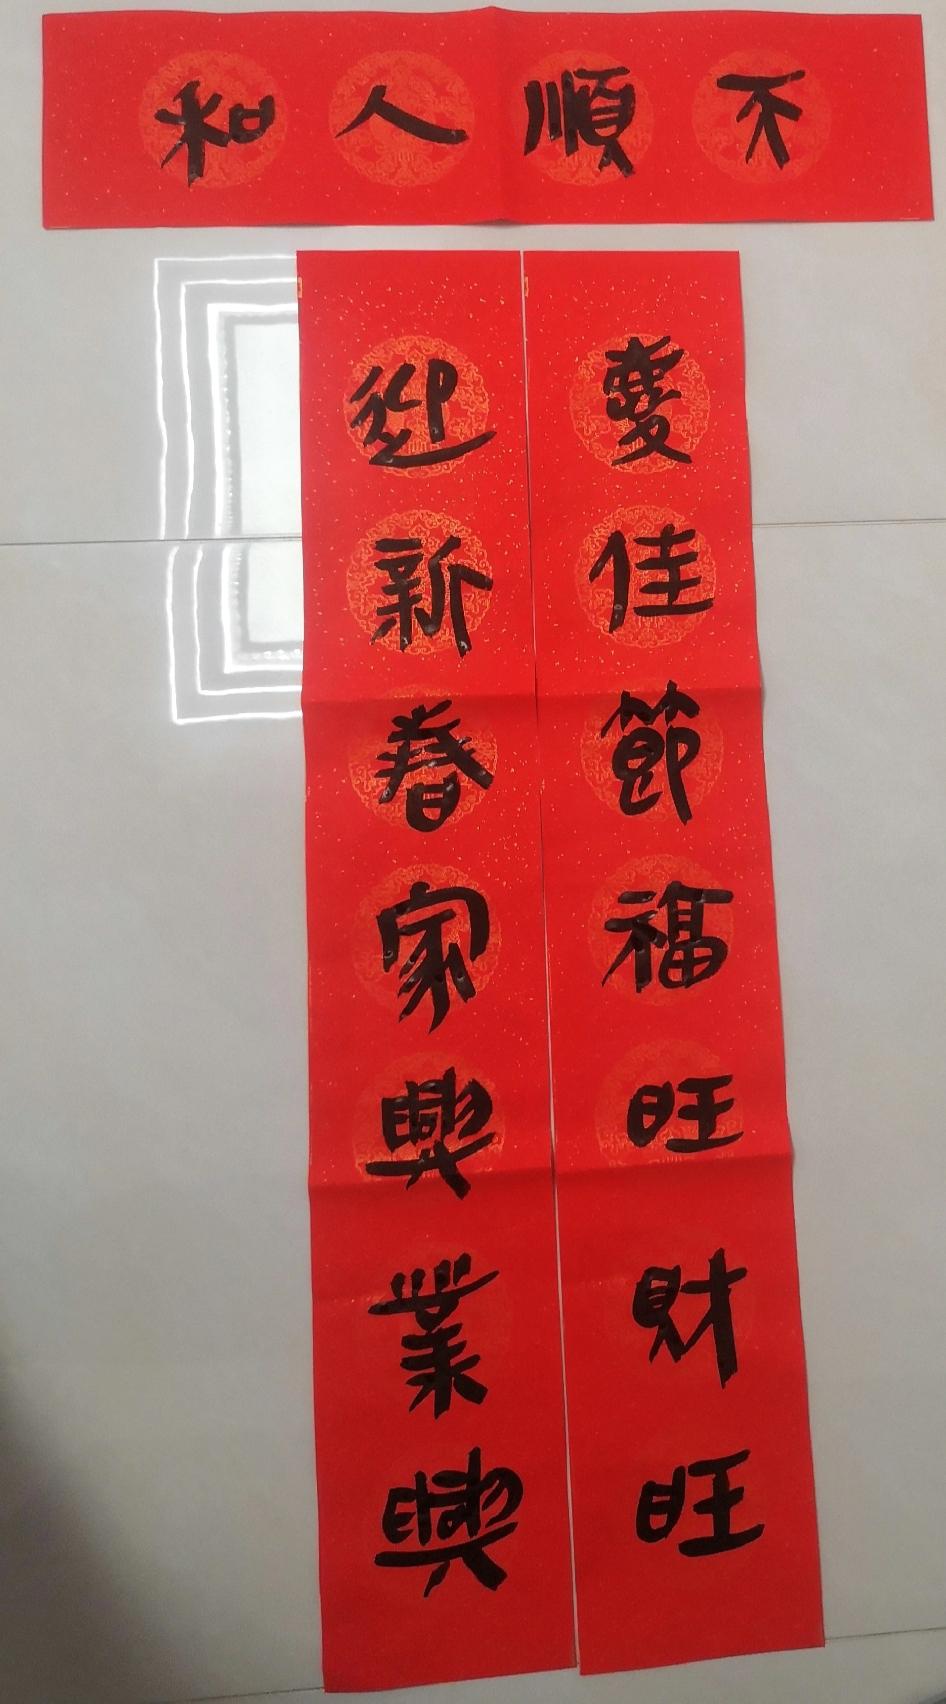 不順人和
慶佳節福旺財旺
迎新春家興業興